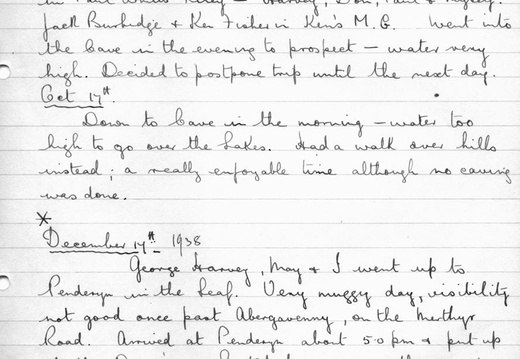 Jack Burbidge & Ken Fisher in Ken's M.G. Went into
the Cave in the evening to prospect — water very
high. Decided to postpone trip until the next day.
Oct 17th.
Down to Cave in the morning — water too
high to go over the Lakes. Had a walk over hills
instead; a really enjoyable time although no caving
was done.
*
December 17th 1938
George Harvey, May & I went up to
Penderyn in the Leaf. Very muggy day, visibility
not good once past Abergavenny, on the Merthyr
Road. Arrived at Penderyn about 5.0 pm & put up